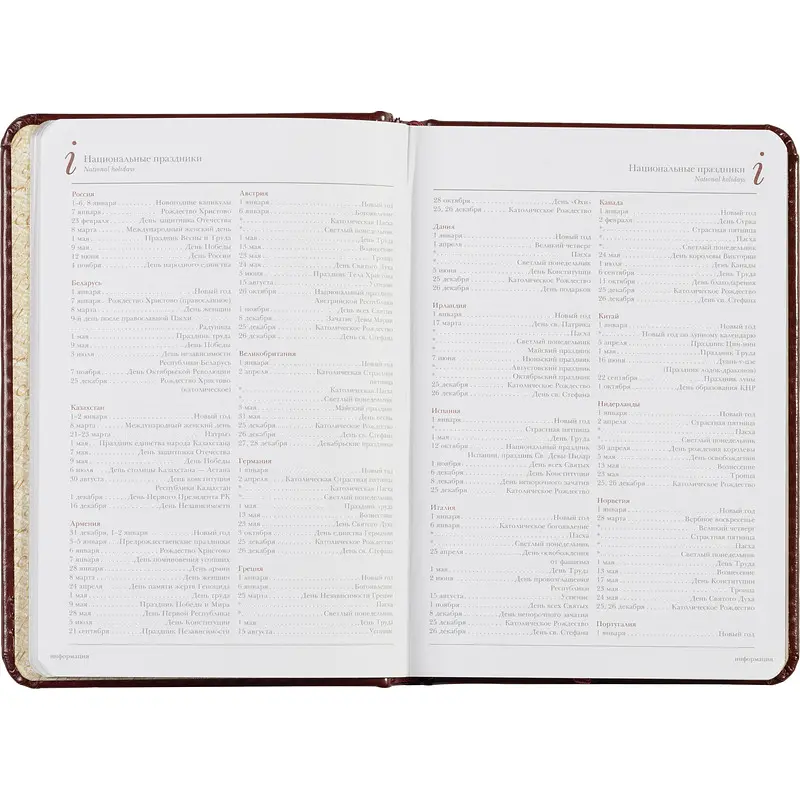 Национальные праздники
National holidays
Россия
1–6, 8 января Новогодние каникулы
7 января Рождество Христово
23 февраля День защитника Отечества
8 марта Международный женский день
1 мая Праздник Весны и Труда
9 мая День Победы
12 июня День России
4 ноября День народного единства
Беларусь
1 января Новый год
7 января Рождество Христово (православное)
8 марта День женщин
9-й день после православной Пасхи
Радуница
1 мая Праздник труда
9 мая День Победы
3 июля День независимости
Республики Беларусь
7 ноября День Октябрьской Революции
25 декабря Рождество Христово
(католическое)
Казахстан
1–2 января Новый год
8 марта Международный женский день
21–23 марта Наурыз
1 мая Праздник единства народа Казахстана
7 мая День защитника Отечества
9 мая День Победы
6 июля День столицы Казахстана — Астана
30 августа День конституции
Республики Казахстан
1 декабря День Первого Президента РК
16 декабря День Независимости
Армения
31 декабря, 1–2 января Новый год
3–5 января Предрождественские праздники
6 января Рождество Христово
7 января День поминовения усопших
28 января День армии
8 марта День женщин
24 апреля День памяти жертв Геноцида
1 мая День труда
9 мая Праздник Победы и Мира
28 мая День Первой Республики
5 июля День Конституции
21 сентября Праздник Независимости
Австрия
1 января Новый год
6 января Богоявление
* Католическая Пасха
* Светлый понедельник
1 мая День Труда
13 мая Вознесение
23 мая Троица
24 мая День Святого Духа
3 июня Праздник Тела Христова
15 августа Успение
26 октября Национальный праздник
Австрийской Республики
1 ноября День всех Святых
8 декабря Зачатие Девы Марии
25 декабря Католическое Рождество
26 декабря День св. Стефана
Великобритания
1 января Новый год
2 апреля Католическая Страстная
пятница
* Католическая Пасха
* Светлый понедельник
3 мая Майский праздник
31 мая День весны
25 декабря Католическое Рождество
26 декабря День св. Стефана
27, 28 декабря Декабрьские праздники
Германия
1 января Новый год
2 апреля Католическая Страстная пятница
* Католическая Пасха
* Светлый понедельник
1 мая Праздник труда
13 мая Вознесение
23 мая День Святого Духа
3 октября День единства Германии
25 декабря Католическое Рождество
26 декабря День св. Стефана
Греция
1 января Новый год
6 января Богоявление
25 марта День Независимости Греции
* Пасха
* Светлый понедельник
1 мая День Труда
15 августа Успение
информация
Национальные праздники
National holidays
28 октября День «Охи»
25, 26 декабря Католическое Рождество
Дания
1 января Новый год
1 апреля Великий четверг
* Пасха
* Светлый понедельник
5 июня День Конституции
25 декабря Католическое Рождество
26 декабря День подарков
Ирландия
1 января Новый год
17 марта День св. Патрика
* Пасха
* Светлый понедельник
* Майский праздник
7 июня Июньский праздник
* Августовский праздник
* Октябрьский праздник
25 декабря Католическое Рождество
26 декабря День св. Стефана
Испания
1 января Новый год
* Страстная пятница
1 мая День Труда
12 октября Национальный праздник
Испании, праздник Св. Девы Пилар
1 ноября День всех Святых
6 декабря День Конституции
8 декабря День непорочного зачатия
25 декабря Католическое Рождество
Италия
1 января Новый год
6 января Католическое богоявление
* Пасха
* Светлый понедельник
25 апреля День освобождения
от фашизма
1 мая День Труда
2 июня День провозглашения
Республики
15 августа Успение
1 ноября День всех Святых
8 декабря День непорочного зачатия
25 декабря Католическое Рождество
26 декабря День св. Стефана
Канада
1 января Новый год
2 февраля День Сурка
* Страстная пятница
* Пасха
* Светлый понедельник
24 мая День королевы Виктории
1 июля День Канады
6 сентября День Труда
11 октября День благодарения
25 декабря Католическое Рождество
26 декабря День св. Стефана
Китай
1 января Новый год
* Новый год по лунному календарю
5 апреля Праздник Цин-мин
1 мая Праздник Труда
16 июня Дуань-у-цзе
(Праздник лодок-драконов)
22 сентября Праздник луны
1 октября День образования КНР
Нидерланды
1 января Новый год
2 апреля Страстная пятница
* Пасха
* Светлый понедельник
30 апреля День рождения королевы
5 мая День освобождения
13 мая Вознесение
23 мая Троица
25, 26 декабря Католическое Рождество
Норвегия
1 января Новый год
28 марта Вербное воскресенье
* Великий четверг
* Страстная пятница
* Пасха
* Светлый понедельник
1 мая День Труда
13 мая Вознесение
17 мая День Конституции
23 мая Троица
24 мая День Святого Духа
25, 26 декабря Католическое Рождество
Португалия
1 января Новый год
информация